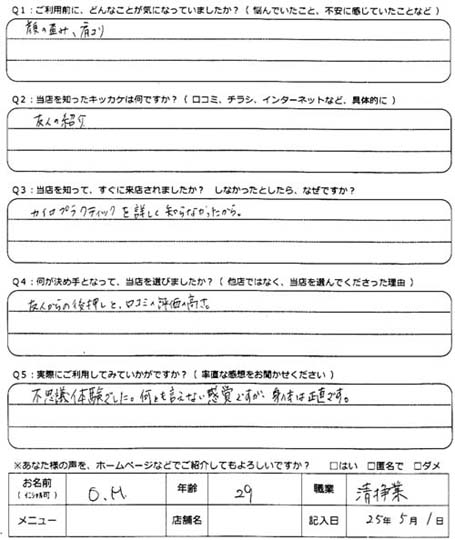 Q1:ご利用前に、どんなことが気になっていましたか?( 悩んでいたこと、不安に感じていたことなど )
顔の歪み、肩コリ
Q2:当店を知ったキッカケは何ですか?( 口コミ、チラシ、インターネットなど、具体的に )
友人の紹介
Q3:当店を知って、すぐに来店されましたか? しなかったとしたら、なぜですか?
カイロプラクティックを詳しく知らなかったから。
Q4:何が決め手となって、当店を選びましたか?( 他店ではなく、当店を選んでくださった理由 )
友人からの後押しと、口コミの評価の高さ。
Q5:実際にご利用してみていかがですか?( 率直な感想をお聞かせください )
不思議体験でした。何とも言えない感覚ですが、身体は正直です。
※あなた様の声を、ホームページなどでご紹介してもよろしいですか? □はい □匿名で □ダメ
お名前 (イニシャル可) O.M 年齢 29 職業 清掃業
メニュー 店舗名 記入日 25年 5月 1日